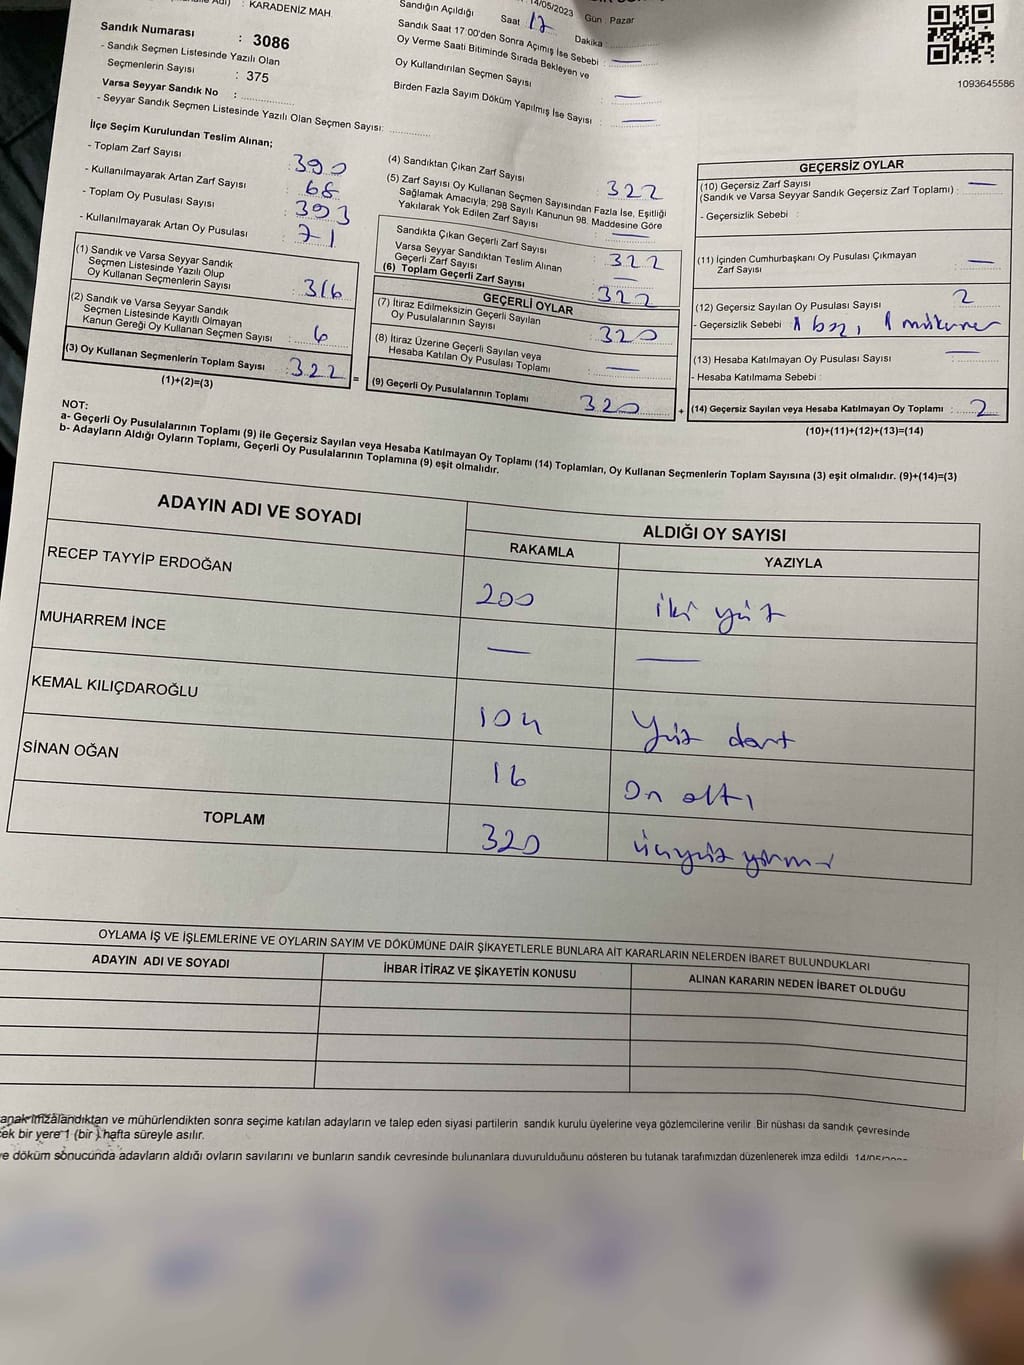 : KARADENİZ MAH.
Sandık Numarası : 3086
- Sandık Seçmen Listesinde Yazılı Olan
Seçmenlerin Sayısı : 375
Varsa Seyyar Sandık No :
- Seyyar Sandık Seçmen Listesinde Yazılı Olan Seçmen Sayısı:
14/05/2023 Gün : Pazar
Sandığın Açıldığı Saat 17 Dakika :
Sandık Saat 17 00'den Sonra Açımış İse Sebebi : —
Oy Verme Saati Bitiminde Sırada Bekleyen ve
Oy Kullandırılan Seçmen Sayısı : —
Birden Fazla Sayım Döküm Yapılmış İse Sayısı : —
1093645586
İlçe Seçim Kurulundan Teslim Alınan;
- Toplam Zarf Sayısı : 390
- Kullanılmayarak Artan Zarf Sayısı : 68
- Toplam Oy Pusulası Sayısı : 393
- Kullanılmayarak Artan Oy Pusulası : 71
(1) Sandık ve Varsa Seyyar Sandık
Seçmen Listesinde Yazılı Olup
Oy Kullanan Seçmenlerin Sayısı : 316
(2) Sandık ve Varsa Seyyar Sandık
Seçmen Listesinde Kayıtlı Olmayan
Kanun Gereği Oy Kullanan Seçmen Sayısı : 6
(3) Oy Kullanan Seçmenlerin Toplam Sayısı : 322 =
(1)+(2)=(3)
(4) Sandıktan Çıkan Zarf Sayısı : 322
(5) Zarf Sayısı Oy Kullanan Seçmen Sayısından Fazla İse, Eşitliği
Sağlamak Amacıyla; 298 Sayılı Kanunun 98. Maddesine Göre
Yakılarak Yok Edilen Zarf Sayısı : —
Sandıkta Çıkan Geçerli Zarf Sayısı : 322
Varsa Seyyar Sandıktan Teslim Alınan
Geçerli Zarf Sayısı : —
(6) Toplam Geçerli Zarf Sayısı : 322
GEÇERLİ OYLAR
(7) İtiraz Edilmeksizin Geçerli Sayılan
Oy Pusulalarının Sayısı : 320
(8) İtiraz Üzerine Geçerli Sayılan veya
Hesaba Katılan Oy Pusulası Toplamı : —
(9) Geçerli Oy Pusulalarının Toplamı : 320 +
GEÇERSİZ OYLAR
(10) Geçersiz Zarf Sayısı : —
(Sandık ve Varsa Seyyar Sandık Geçersiz Zarf Toplamı) :
- Geçersizlik Sebebi :
(11) İçinden Cumhurbaşkanı Oy Pusulası Çıkmayan
Zarf Sayısı : —
(12) Geçersiz Sayılan Oy Pusulası Sayısı : 2
- Geçersizlik Sebebi : 1
(13) Hesaba Katılmayan Oy Pusulası Sayısı : —
- Hesaba Katılmama Sebebi :
(14) Geçersiz Sayılan veya Hesaba Katılmayan Oy Toplamı : 2
(10)+(11)+(12)+(13)=(14)
NOT:
a- Geçerli Oy Pusulalarının Toplamı (9) ile Geçersiz Sayılan veya Hesaba Katılmayan Oy Toplamı (14) Toplamları, Oy Kullanan Seçmenlerin Toplam Sayısına (3) eşit olmalıdır. (9)+(14)=(3)
b- Adayların Aldığı Oyların Toplamı, Geçerli Oy Pusulalarının Toplamına (9) eşit olmalıdır.
ADAYIN ADI VE SOYADI ALDIĞI OY SAYISI
RAKAMLA YAZIYLA
RECEP TAYYİP ERDOĞAN 200 iki yüz
MUHARREM İNCE — —
KEMAL KILIÇDAROĞLU 104 Yüz dört
SİNAN OĞAN 16 On altı
TOPLAM 320 üçyüz yirmi
OYLAMA İŞ VE İŞLEMLERİNE VE OYLARIN SAYIM VE DÖKÜMÜNE DAİR ŞİKAYETLERLE BUNLARA AİT KARARLARIN NELERDEN İBARET BULUNDUKLARI
ADAYIN ADI VE SOYADI İHBAR İTİRAZ VE ŞİKAYETİN KONUSU ALINAN KARARIN NEDEN İBARET OLDUĞU
anak imzalandıktan ve mühürlendikten sonra seçime katılan adayların ve talep eden siyasi partilerin sandık kurulu üyelerine veya gözlemcilerine verilir. Bir nüshası da sandık çevresinde
ek bir yere 1 (bir) hafta süreyle asılır.
e döküm sonucunda adayların aldığı oyların sayılarını ve bunların sandık çevresinde bulunanlara duyurulduğunu gösteren bu tutanak tarafımızdan düzenlenerek imza edildi